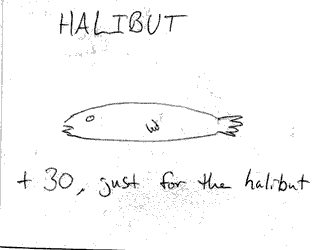 HALIBUT
+ 30, just for the halibut